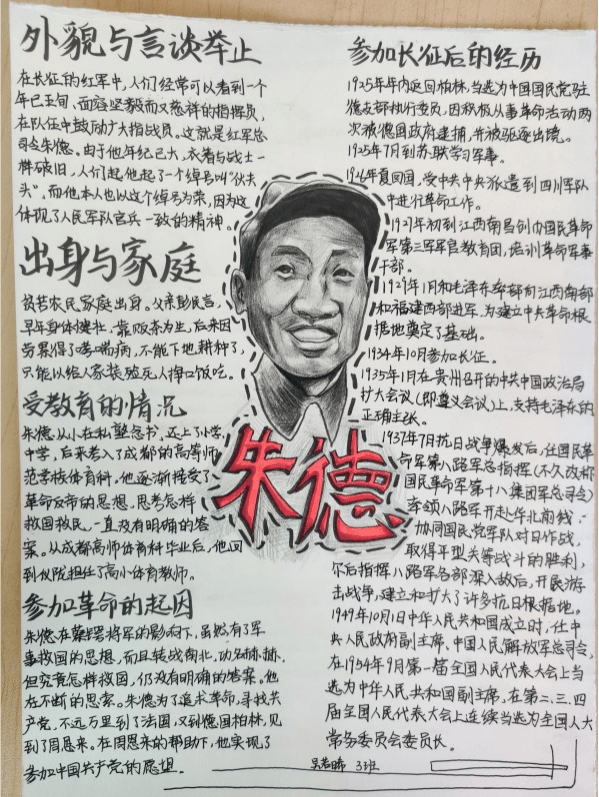 外貌与言谈举止
在长征的红军中,人们经常可以看到一个
年已五旬、面容坚毅而又慈祥的指挥员,
在队伍中鼓励广大指战员。这就是红军总
司令朱德。由于他年纪已大,衣着与战士一
样破旧,人们起他起了个绰号叫“伙夫
头”。而他本人也以这个绰号为荣,因为这
体现了人民军队官兵一致的精神。
出身与家庭
贫苦农民家庭出身。父亲彭民言,
早年身体健壮,靠贩茶为生,后来因
劳累得了哮喘病,不能下地耕种了,
只能以给人家装殓死人挣口饭吃。
受教育的情况
朱德从小在私塾念书,还上了小学、
中学,后来考入了成都的高等师
范学校体育科,他逐渐接受了
革命反帝的思想,思考怎样
救国救民,一直没有明确的答
案。从成都高师体育科毕业后,他回
到仪陇担任了高小体育教师。
参加革命的起因
朱德在蔡锷将军的影响下,虽然有了军
事救国的思想,而且转战南北,功名赫赫,
但究竟怎样救国,仍没有明确的答案。他
在不断的思索。朱德为了追求革命,寻找共
产党,不远万里到了法国,又到德国柏林,见
到了周恩来。在周恩来的帮助下,他实现了
参加中国共产党的愿望。
朱德
参加长征后的经历
1925年年内返回柏林,当选为中国国民党驻
德支部执行委员,因积极从事革命活动两
次被德国政府逮捕,并被驱逐出境。
1925年7月到苏联学习军事。
1926年夏回国,受中共中央派遣到四川军队
中进行革命工作。
1927年初到江西南昌创办国民革命
军第三军军官教育团,培训革命军事
干部。
1929年1月和毛泽东率部向江西南部
和福建西部进军,为建立中央革命根
据地奠定了基础。
1934年10月参加长征。
1935年1月在贵州召开的中共中国政治局
扩大会议(即遵义会议)上,支持毛泽东的
正确主张。
1937年7月抗日战争爆发后,任国民革
命军第八路军总指挥(不久改称
国民革命军第十八集团军总司令)
率领八路军开赴华北前线,
协同国民党军队对日作战,
取得平型关等战斗的胜利,
尔后指挥八路军各部深入敌后,开展游
击战争,建立和扩大了许多抗日根据地。
1949年10月1日中华人民共和国成立时,任中
央人民政府副主席、中国人民解放军总司令,
在1954年9月第一届全国人民代表大会上当
选为中华人民共和国副主席,在第二、三、四
届全国人民代表大会上连续当选为全国人大
常务委员会委员长。
3班